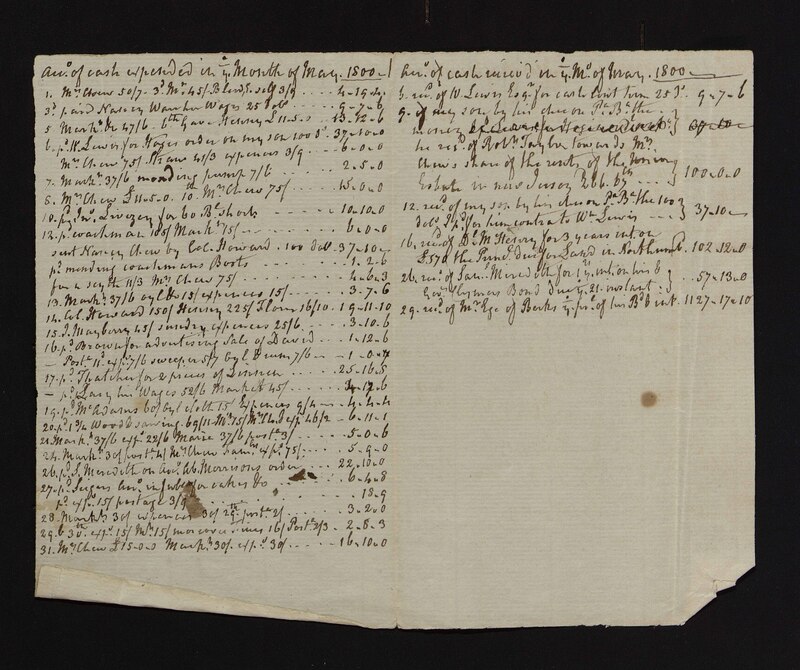 Accot. of cash expended in ye Month of May 1800
1. Mrs. Chew 50/7. 3d. Mrs. 45/ self 3/9 4-19-4
3d. paid Nancey Wages 25 dol. 9-7-6
5 Markt. &c 47/6. 6th. gave Henery £11-5-0 13-12-6
6. pd. W. Lewis for Hages order on my son 100 ds. 37-10-0
Mrs. Chew 75/ Straw 41/3 expences 3/9 6-0-0
7. Markt. 37/6 mending pump 7/6 2-5-0
8. Mrs. Chew £11-5-0. 10th. Mrs. Chew 75/ 15-0-0
10. pd. Jno. Livezey for 60 Bs. shorts 10-10-0
12. pd. coachman 105/ Markt. 75/ 6-0-0
sent Nancey Chew by Col. Howard. 100 dol. 37-10-0
pd. mending coachmans Boots 1-2-6
for a scyth 11/3 Mrs. Chew 75/ 4-6-3
13. Markt. 37/6 15/ expences 15/ 3-7-6
14. Col. Howard 150/ Henery 225/ 16/10 19-11-10
15. J. Mayberry 45/ sundry expences 25/6 3-10-6
16. pd. Brown for advertising Sale of David 1-12-6
- Poste. 11d. exps. 7/6 sweeper 5/7 7/6 1-0-7
17. pd. Thatcher for 2 pieces of Linnen 25-16-5
- pd. his Wages 52/6 Market 45/ 4-17-6
19. pd. Mr. Adams 60/ cloth 15/ Expences 9/4 4-4-4
20. pd. 1 3/4 Wood & sawing 69/11 Mrs. 15/ exp. 46/2 6-11-1
21. Markt. 37/6 exps. 22/6 37/6 poste. 3/ 5-0-6
24. Markt. 30/ poste. 4/ Mrs. Chew exps. 75/ 5-9-0
26. pd. S. Meredith on Accot. Ab. Morrisons order 22-10-0
27. pd. Accot. in full for cakes &c 6-4-8
pd. exps. 15/ postage 3/9 18-9
28. Markt. 30/ expences 30/ 29th. poste. 2/ 3-2-0
29. & 30th. exps. 15/ Mrs. 15/ 16/ Poste. 2/3 2-8-3
31. Mrs. Chew £15-0-0 Markt. 30/. exps. 30/ 16-10-0
Accot. of cash receivd in ye Mo. of May 1800
3. recd. of W Lewis Esqr. for cash lent him 25 ds. 9-7-6
9. of my son by his che on Pa. Bk. the
money
he recd. of Robt. Taylor towards Mrs.
Chews share of the rents of the
Estate in new Jersey 266. 100-0-0
12. recd. of my son by his che on Pa. Bk. the 100
dols. I pd. for him contra to Wm. Lewis 37-10-
16. recd. of Dr. McHenry for 3 years int. on
£570 the Princl. due for Land in Northumbd. 102-12-0
26. recd. of Saml. Meredith for 1 yr. int. on his &
Govr. Clymers Bond due ye 21. instant 57-13-0
29. recd. of Mr. Ege of Berks ye pr. of his Bd. & int. 1127-17-10